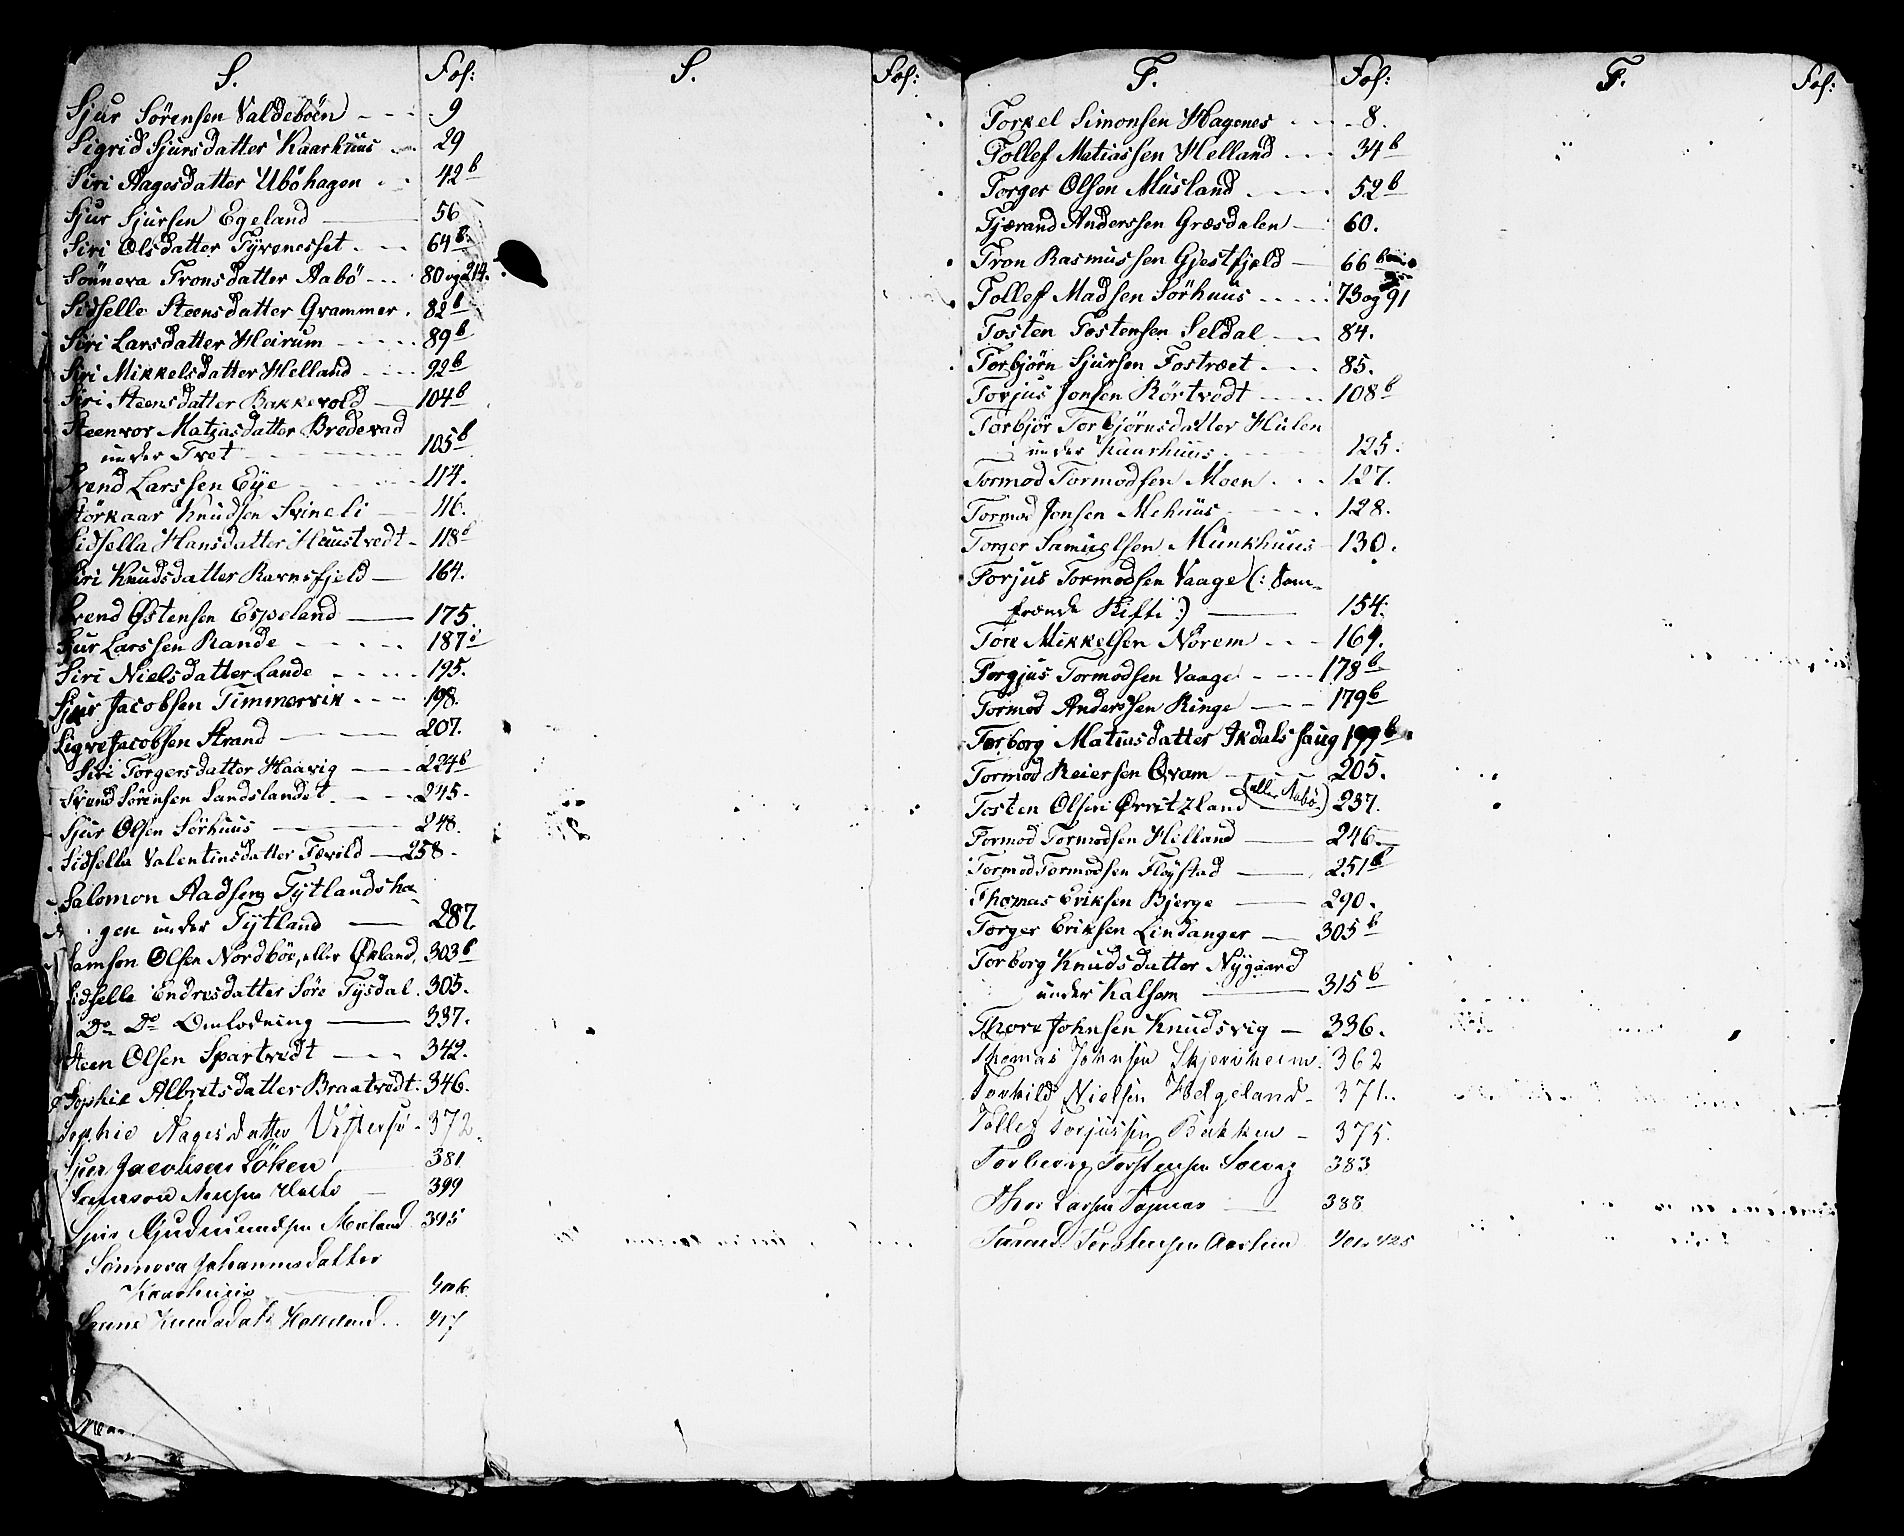 S. Fol:
Sjur Sørensen Valdebøen 9
Sigrid Sjursdatter Kaarhuus 29
Siri Aagesdatter Ubøhagen 42b
Sjur Sjursen Egeland 56
Siri Olsdatter Tyrenesset 64b.
Sönneva Tronsdatter Aabö 80 og 214.
Sidselle Steensdatter Qvammer 82b
Siri Larsdatter Heirum 89b
Siri Mikkelsdatter Helland 92b
Siri Steensdatter Bakkevold 104b
Steenvor Matiasdatter Brødevad
under Tvet 105b
Svend Larssen Eye 114.
Störkaar Knudsen Svineli 116.
Sidsella Hansdatter Haustvedt 118b
Siri Knudsdatter Ravnsfjeld 164.
Svend Østensen Espeland 175
Sjur Larssen Rande 187b
Siri Nielsdatter Lande 195.
Sjur Jacobsen Timmervik 198.
Sigve Jacobsen Strand 207.
Siri Torgersdatter Haavig 224b
Svend Sørensen Sandslandet 245.
Sjur Olsen Sörhuus 248.
Sidsella Valentinsdatter Tævild 258.
Salomon Aadsen Tytlandsha-
gen under Tytland 287.
Samson Olsen Nordbøe, eller Økland 303b
Sidselle Endresdatter Søre Tysdal 305.
Do Do Omlodning 337.
Steen Olsen Spartvedt 342.
Sophie Albretsdatter Braatvedt 346.
Sophie Aagesdatter Vestersø 372.
Sjur Jacobsen Løken 381
Samson 399
Sjur Gudmundsen Mæland 395
Sönneva Johannesdatter
Kaarhuus 406
Knudsdatt Helland 417
S. Fol:
T. Fol:
Torkel Simonsen Hagenes 8.
Tollef Matiassen Helland 34b
Torger Olsen Musland 52b
Tjærand Anderssen Græsdalen 60.
Tron Rasmussen Gjestfjeld 66b
Tollef Madsen Sörhuus 73 og 91
Tosten Tostensen Seldal 84.
Torbjörn Sjursen Fostvæt 85.
Torjus Jonsen Rörtvedt 108b
Torbjør Torbjørnsdatter Hulen
under Kaarhuus 125.
Tormod Tormodsen Moen 127.
Tormod Jonsen Mehuus 128.
Torger Samuelsen Munkhuus 130.
Torjus Tormodsen Vaage (: Sam-
frænde Skifte :) 154.
Tore Mikkelsen Nörem 169.
Torgjus Tormodsen Vaage 178b
Tormod Anderssen Ringe 179b
Torborg Matiasdatter Ikdalshaug 199b
Tormod Reiersen Qvam 205.
Tosten Olsen Øvretzland (eller Aabø) 237.
Tormod Tormodsen Helland 246.
Tormod Tormodsen Fløystad 251b
Thomas Eriksen Bjerge 290.
Torger Eriksen Lindanger 305b
Torborg Knudsdatter Nygaard
under Kalsem 315b
Thore Johnsen Knudsvig 336.
Thomas Johnsen Skjerisheim 362
Torkild Nielsen Helgeland 371.
Tollef Torjussen Bakken 375.
Torberg Torstensen 383
Thor Larsen 388
Torstensen 401. 425
T. Fol: